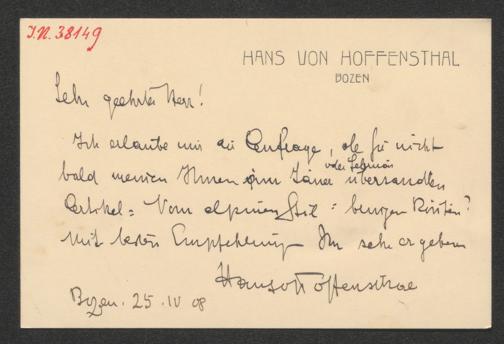 J.N. 38149
HANS VON HOFFENSTHAL
BOZEN
Sehr geehrter Herr!
Ich erlaube mir die Anfrage, ob Sie nicht
bald meinen Ihnen im Jänner oder Februar übersandten
Artikel = Vom alpinen Stil = bringen
Mit besten Empfehlungen Ihr sehr ergebener
Hans v Hoffensthal
Bozen. 25. IV 08